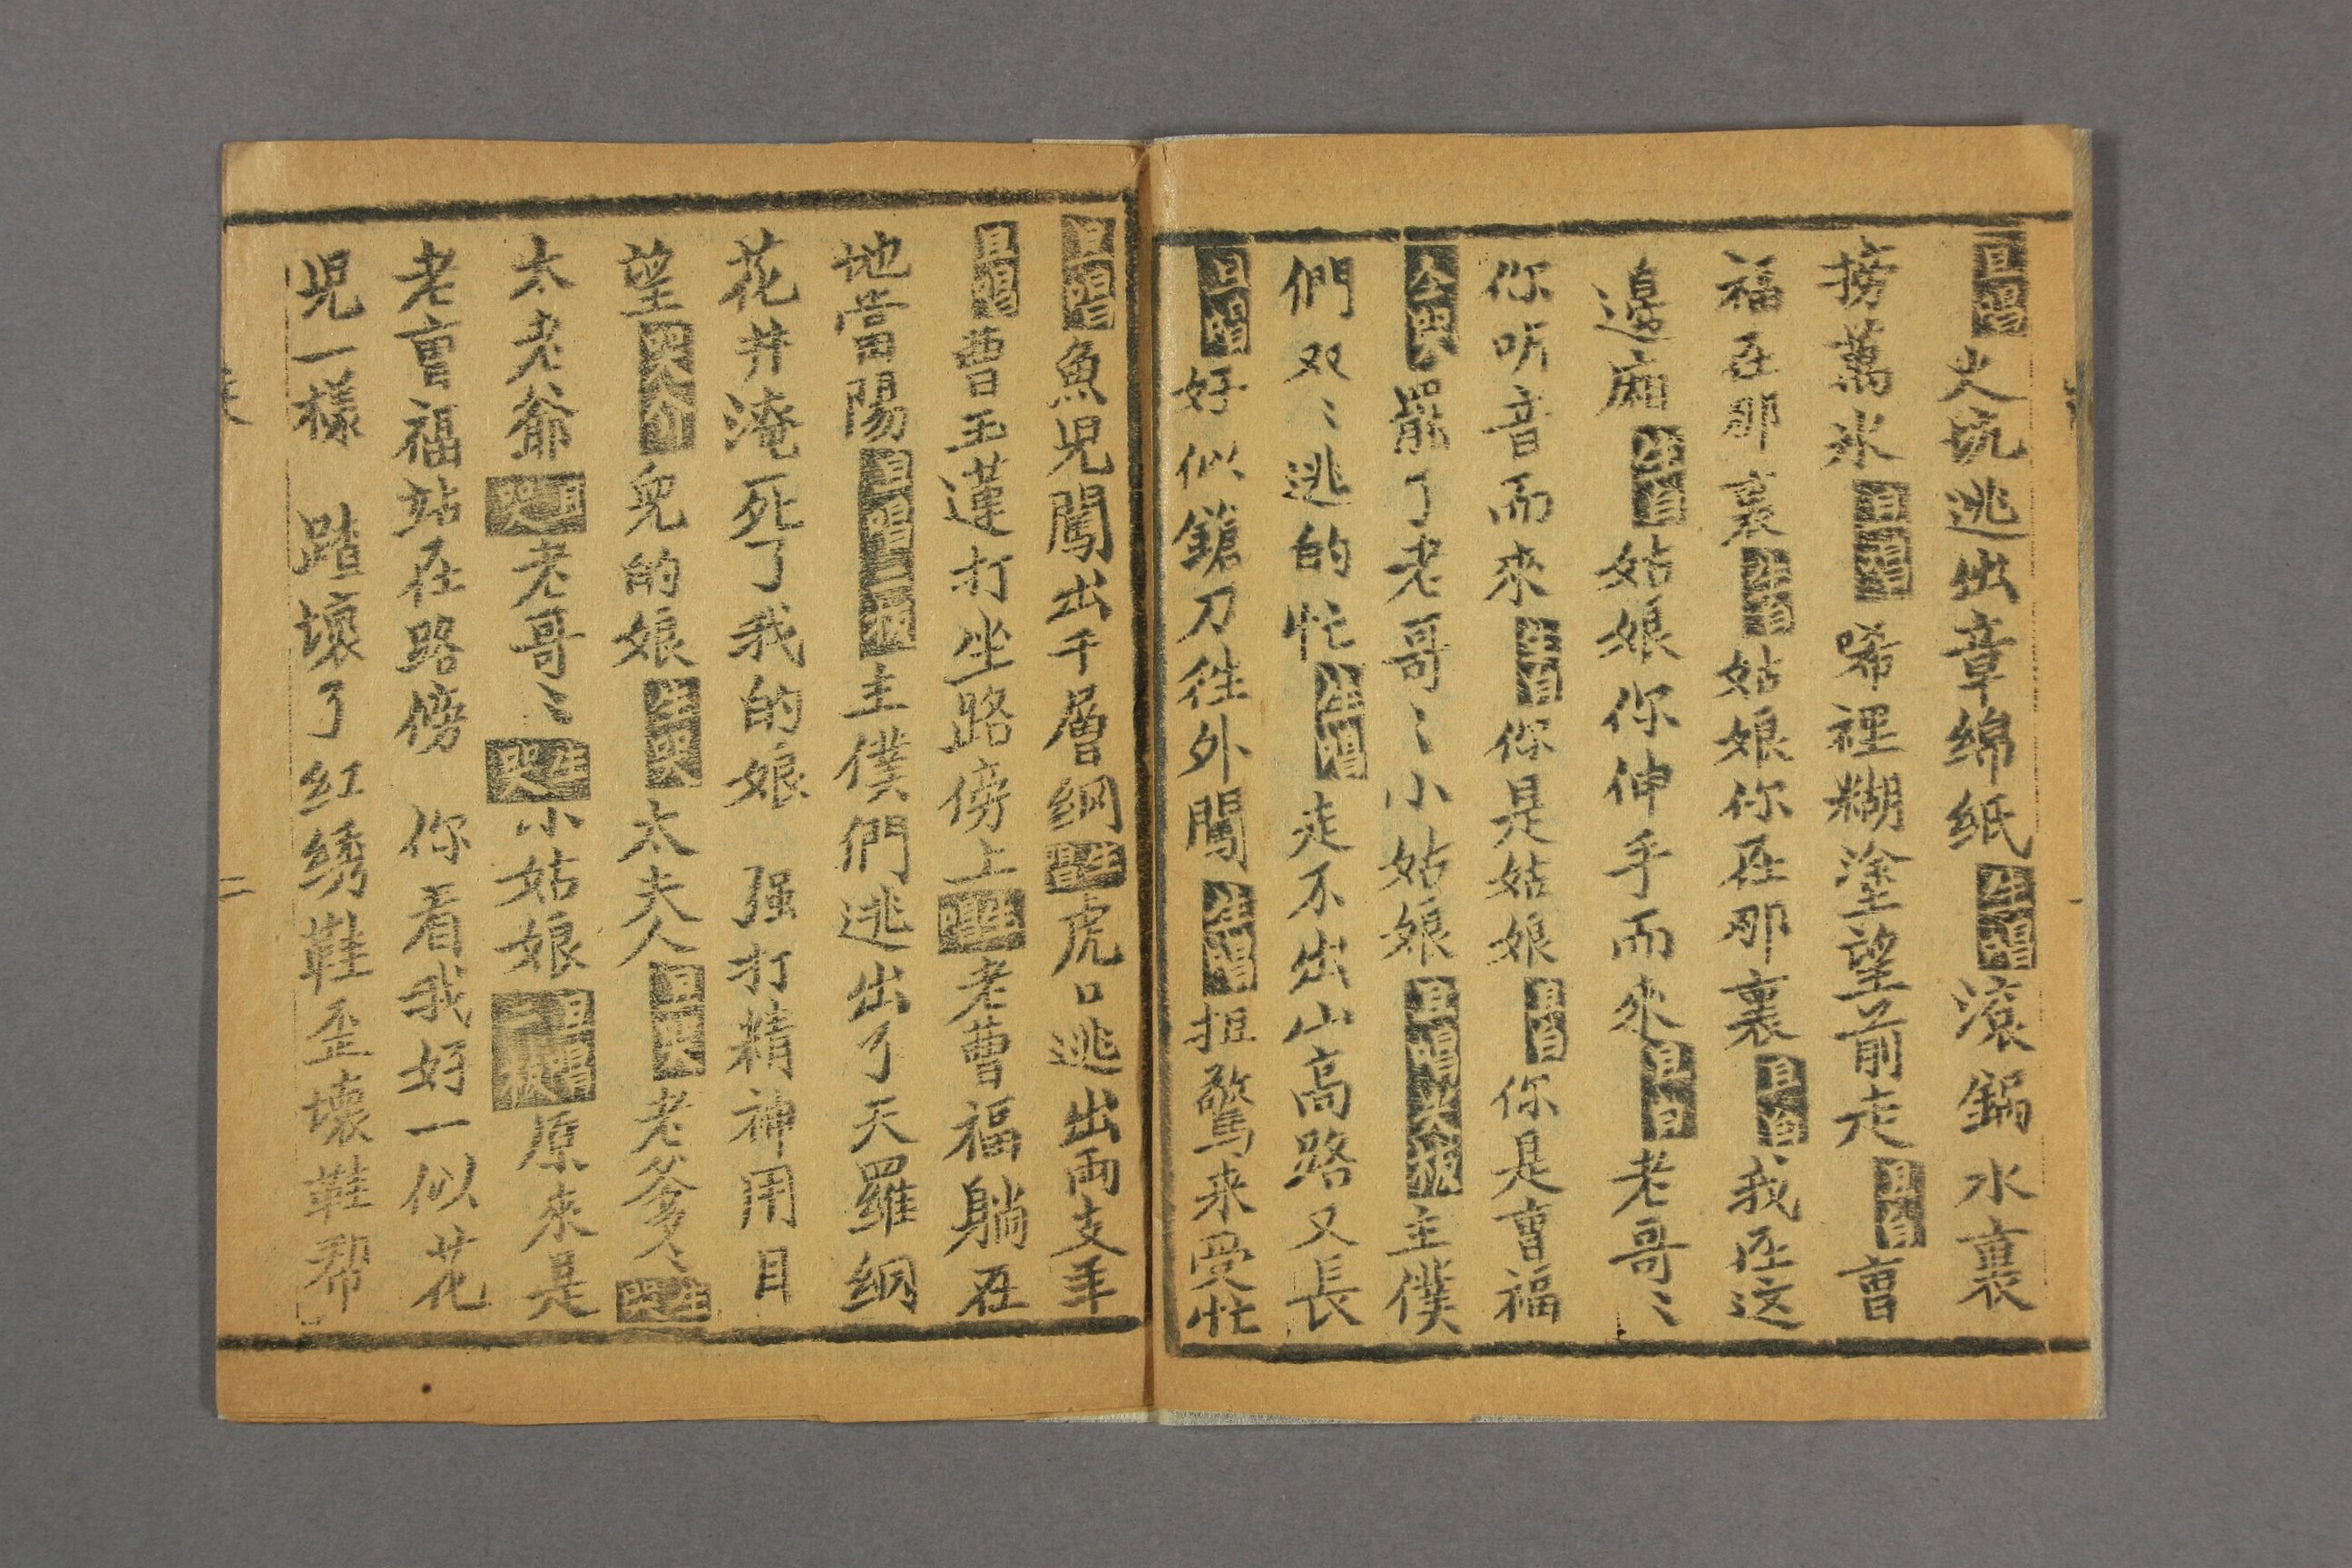 旦唱火坑逃出章绵纸生唱滚鍋水裏
撈萬氷旦唱唏裡糊塗望前走旦白曺
福在那裏生白姑娘你在那裏旦白我在这
邊廂生白姑娘你伸手而來旦白老哥〻
你听音而來生白你是姑娘旦白你是曺福
仝哭罷了老哥〻小姑娘旦唱尖板主僕
們双〻逃的忙生唱走不出山高路又長
旦唱好似鎗刀徃外闖生唱担驚来受忙
旦唱魚児闖出千層網生唱虎口逃出両支羊
旦唱曹玉蓮打坐路傍上生唱老曹福躺在
地當陽旦唱主僕們逃出了天羅網
花井淹死了我的娘 强打精神用目
望哭介児的娘生哭太夫人旦哭老爹〻生哭
太老爺旦哭老哥〻生哭小姑娘旦唱二板原來是
老曺福站在路傍 你看我好一似花
児一樣 踏壞了红绣鞋歪壊鞋帮
二